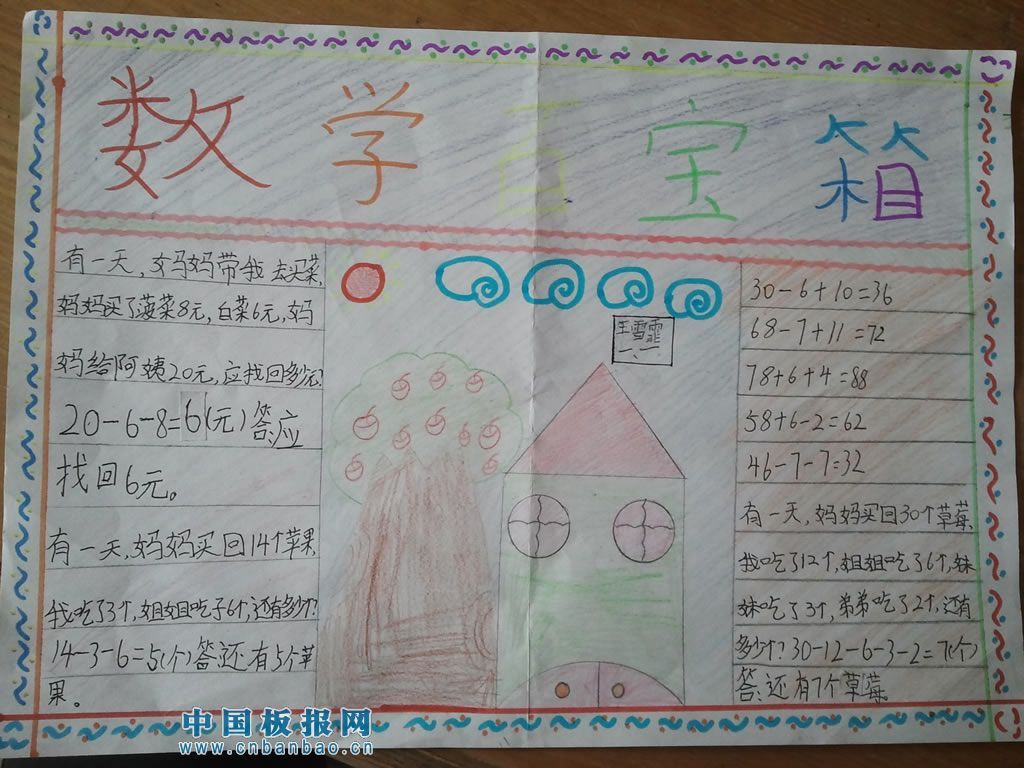 数学百宝箱
有一天，妈妈带我去买菜，
妈妈买了菠菜8元，白菜6元，妈
妈给阿姨20元，应找回多少元？
20-6-8=6(元) 答：应
找回6元。
有一天，妈妈买回14个苹果，
我吃了3个，姐姐吃了6个，还有多少个？
14-3-6=5(个) 答：还有5个苹
果。
王雪霏
一、一
30-6+10=36
68-7+11=72
78+6+4=88
58+6-2=62
46-7-7=32
有一天，妈妈买回30个草莓，
我吃了12个，姐姐吃了6个，妹
妹吃了3个，弟弟吃了2个，还有
多少个？30-12-6-3-2=7(个)
答：还有7个草莓。
中国板报网
www.cnbanbao.cn